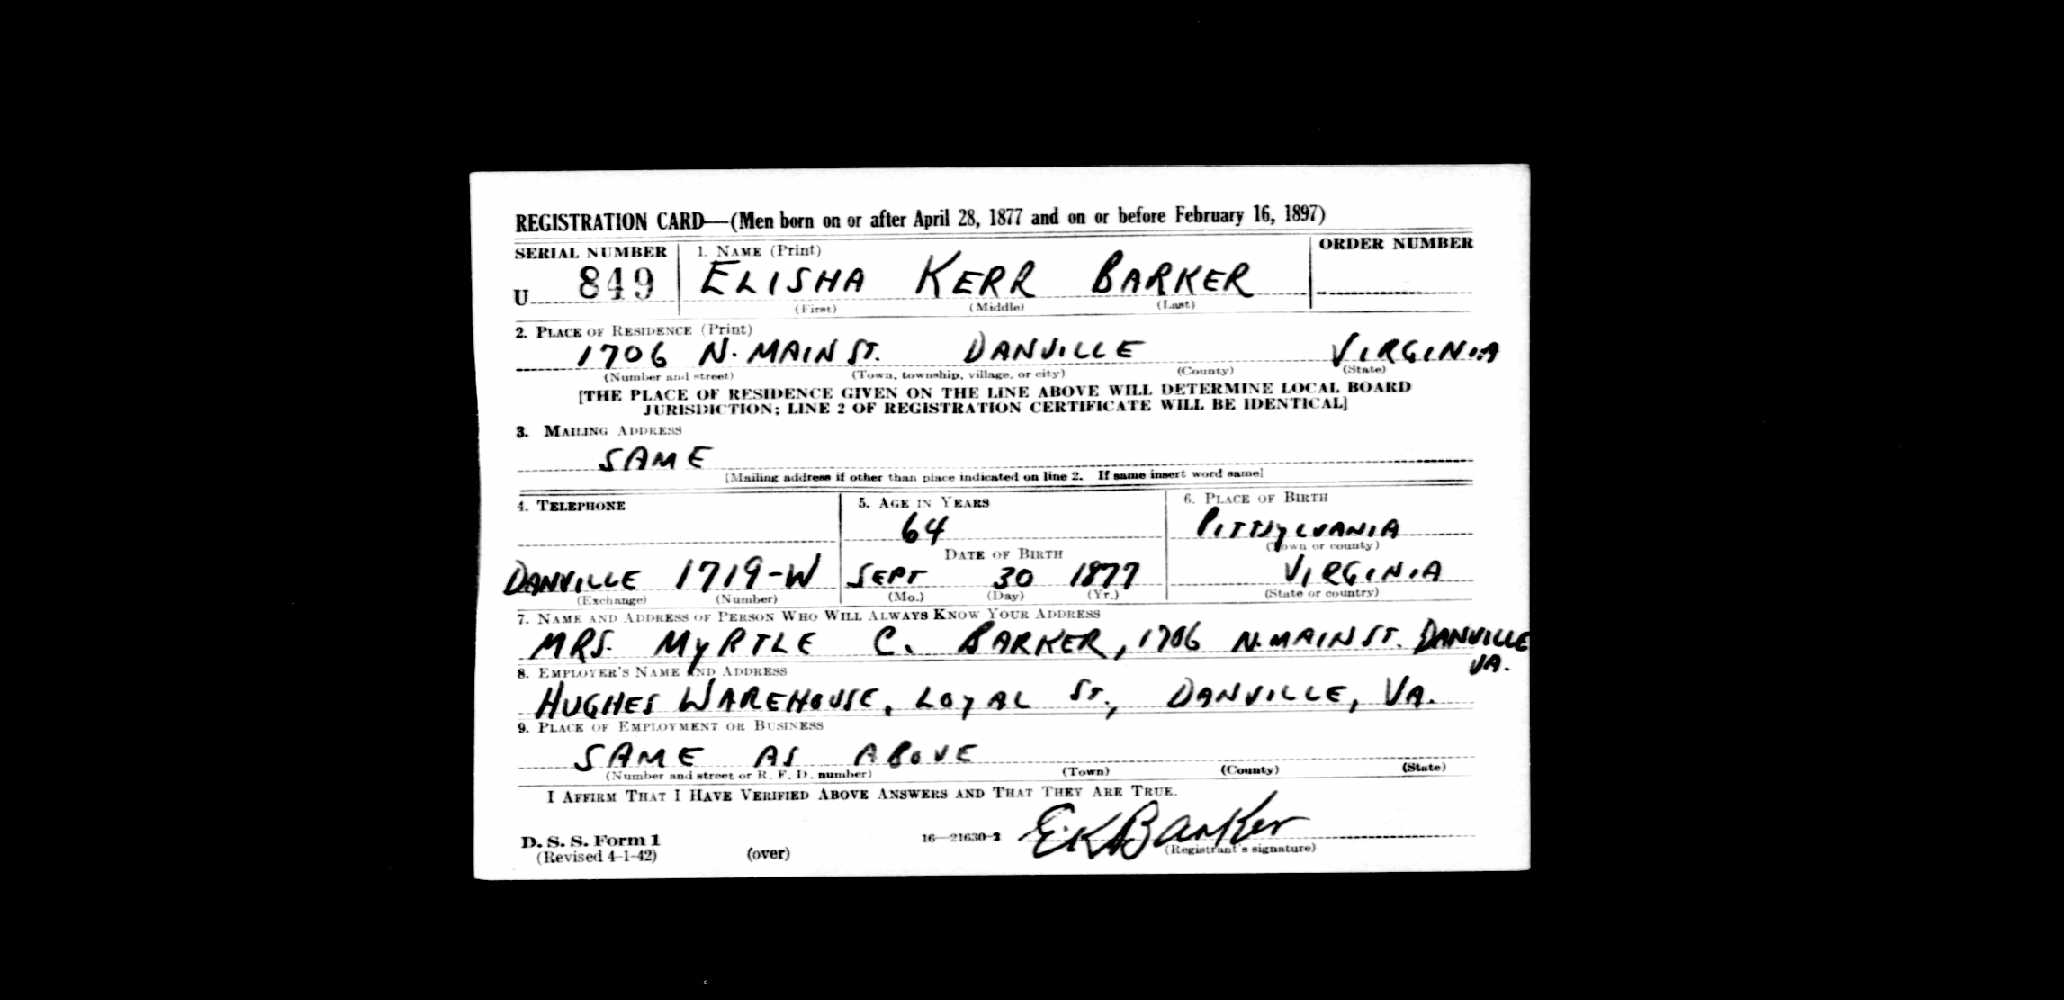 REGISTRATION CARD—(Men born on or after April 28, 1877 and on or before February 16, 1897)
SERIAL NUMBER 1. NAME (Print) ORDER NUMBER
U 849 ELISHA KERR BARKER
(First) (Middle) (Last)
2. PLACE OF RESIDENCE (Print)
1706 N. MAIN ST. DANVILLE VIRGINIA
(Number and street) (Town, township, village, or city) (County) (State)
[THE PLACE OF RESIDENCE GIVEN ON THE LINE ABOVE WILL DETERMINE LOCAL BOARD
JURISDICTION; LINE 2 OF REGISTRATION CERTIFICATE WILL BE IDENTICAL]
3. MAILING ADDRESS
SAME
[Mailing address if other than place indicated on line 2. If same insert word same]
4. TELEPHONE 5. AGE IN YEARS 6. PLACE OF BIRTH
64 PITTSYLVANIA
(Town or county)
DATE OF BIRTH
DANVILLE 1719-W SEPT 30 1877 VIRGINIA
(Exchange) (Number) (Mo.) (Day) (Yr.) (State or country)
7. NAME AND ADDRESS OF PERSON WHO WILL ALWAYS KNOW YOUR ADDRESS
MRS. MYRTLE C. BARKER, 1706 N. MAIN ST. DANVILLE
VA.
8. EMPLOYER'S NAME AND ADDRESS
HUGHES WAREHOUSE, LOYAL ST., DANVILLE, VA.
9. PLACE OF EMPLOYMENT OR BUSINESS
SAME AS ABOVE
(Number and street or R. F. D. number) (Town) (County) (State)
I AFFIRM THAT I HAVE VERIFIED ABOVE ANSWERS AND THAT THEY ARE TRUE.
D. S. S. Form 1 16—21630-2 EK Barker
(Revised 4-1-42) (over) (Registrant's signature)